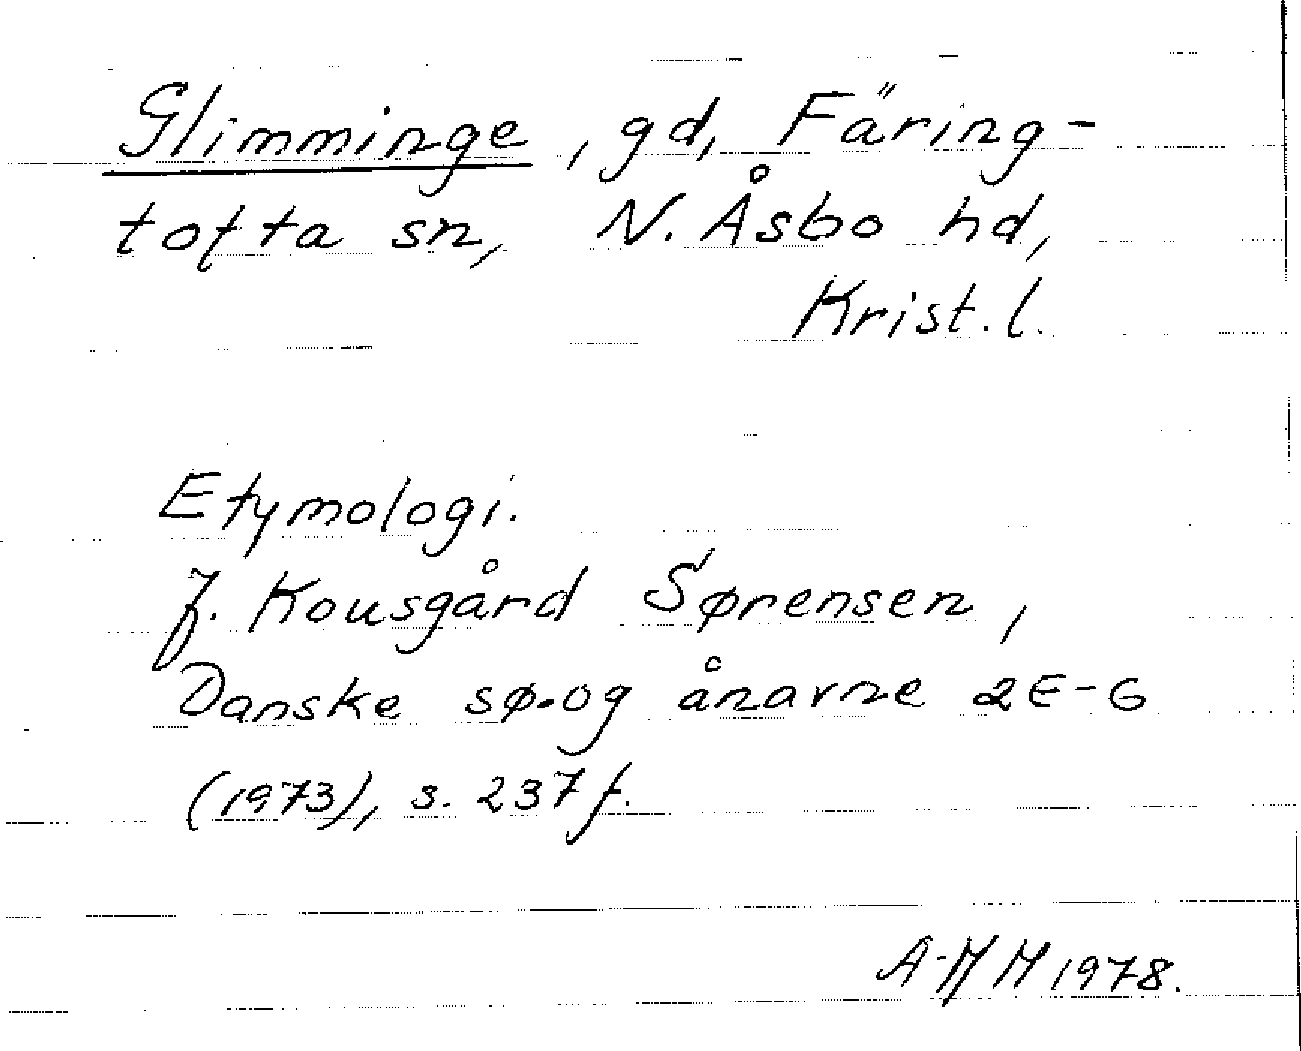 Glimminge, gd, Färing-
tofta sn, N. Åsbo hd,
Krist. l.
Etymologi.
J. Kousgård Sørensen,
Danske sø- og ånavne 2E-G
(1973), s. 237 f.
1978.